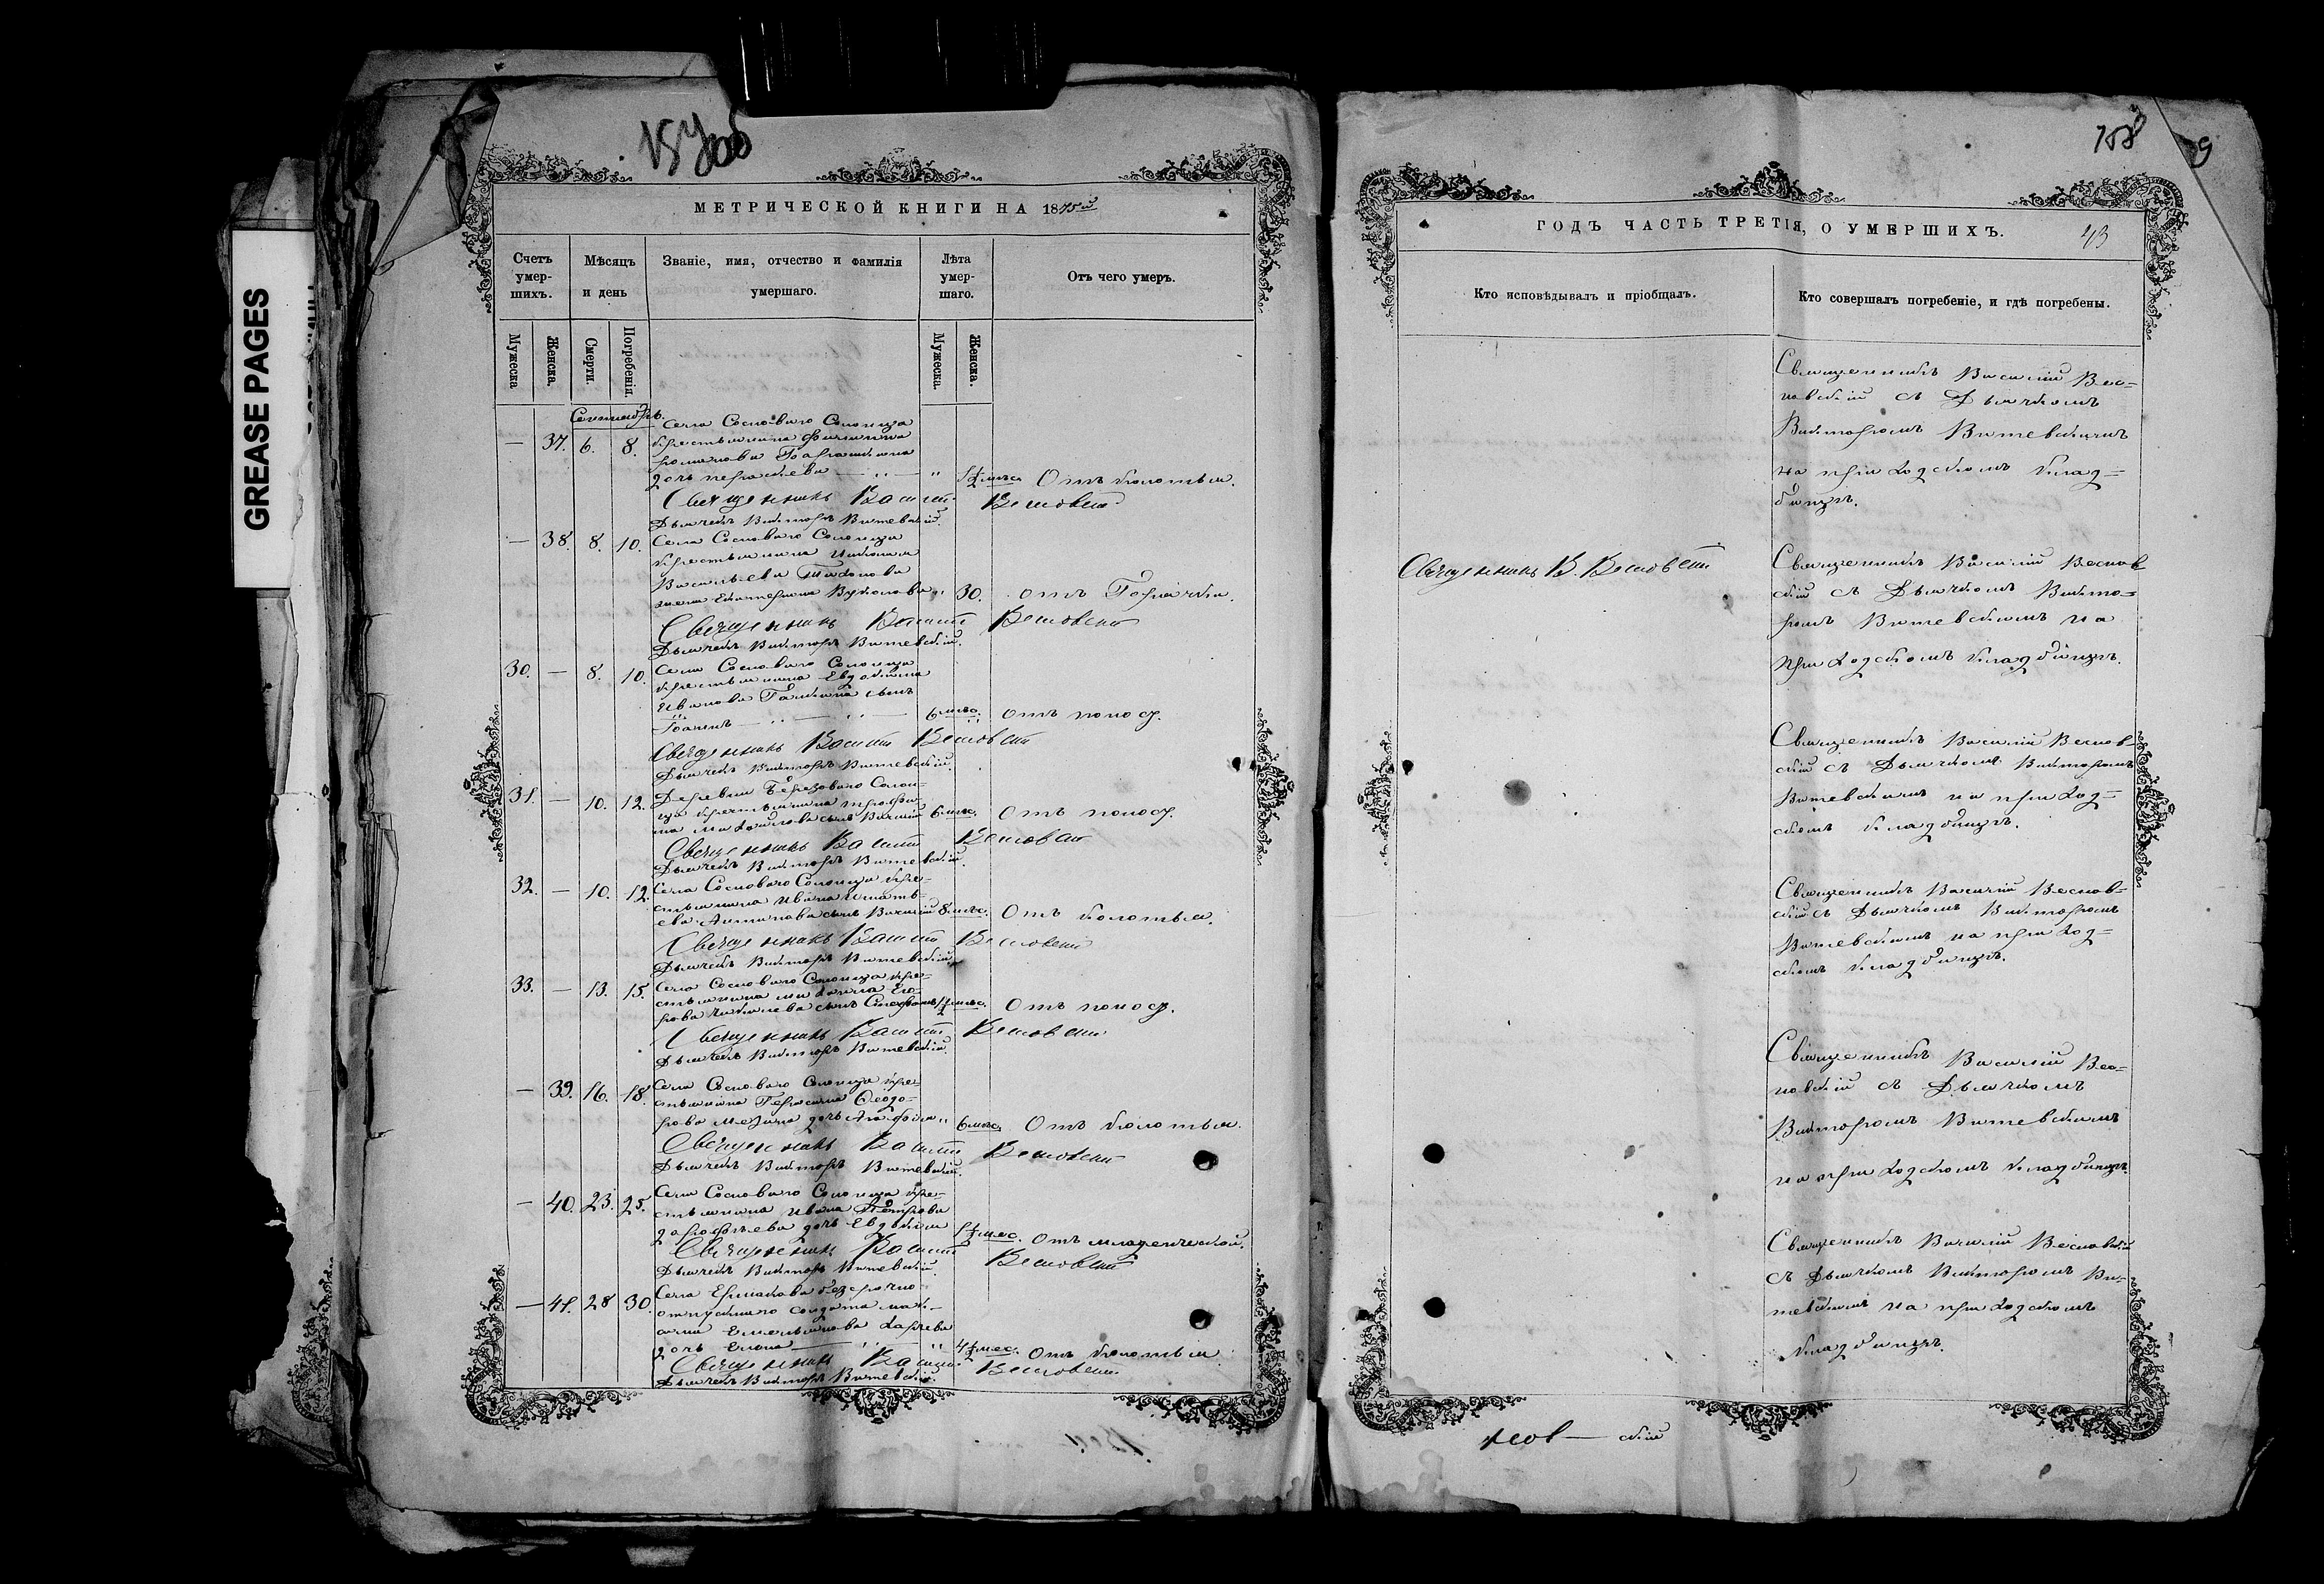 GREASE PAGES
МЕТРИЧЕСКОЙ КНИГИ НА 1875й
Счетъ умер-шихъ.
Мѣсяцъ и день
Званіе, имя, отчество и фамилія умершаго.
Лѣта умер-шаго.
Отъ чего умеръ.
Мужеска
Женска.
Смерти.
Погребенія.
Мужеска.
Женска.
Сентябрь.
Села Сосноваго Солонца
— 37. 6. 8. крестьянина Филиппа
дочь
1½ мѣс. Отъ колотья.
Священникъ Василій Весновскій
Дьячекъ Викторъ Витевскій.
— 38. 8. 10. Села Сосноваго Солонца
крестьянина
Васильева Тихонова
жена Екатерина " 30. отъ Горячки.
Священникъ Василій Весновскій
Дьячекъ Викторъ Витевскій.
30. — 8. 10. Села Сосноваго Солонца
крестьянина Евдокима
Иванова сынъ
Іоаннъ 6 мѣс. отъ поносу.
Священникъ Василій Весновскій
Дьячекъ Викторъ Витевскій.
31. — 10. 12. Деревни Березоваго Солон-
ца крестьянина Трофи-
ма Михайлова сынъ Василій 6 мѣс. Отъ поносу.
Священникъ Василій Весновскій
Дьячекъ Викторъ Витевскій.
32. — 10. 12. Села Сосноваго Солонца кре-
стьянина Ивана Игнать-
ева Антипова сынъ Василій 8 мѣс. Отъ колотья.
Священникъ Василій Весновскій
Дьячекъ Викторъ Витевскій.
33. — 13. 15. Села Сосноваго Солонца кре-
стьянина Михаила Его-
рова сынъ Стефанъ 1½ мѣс. Отъ поносу.
Священникъ Василій Весновскій
Дьячекъ Викторъ Витевскій.
— 39. 16. 18. Села Сосноваго Солонца кре-
стьянина Герасима Ѳеодо-
рова дочь " 6 мѣс. Отъ колотья.
Священникъ Василій Весновскій
Дьячекъ Викторъ Витевскій.
— 40. 23. 25. Села Сосноваго Солонца кре-
стьянина Ивана Петрова
Дорофѣева дочь Евдокія 1½ мес. Отъ младенческой.
Священникъ Василій Весновскій
Дьячекъ Викторъ Витевскій.
— 41. 28 30. Села Ермакова безсрочно-
отпускнаго солдата
Емельянова
дочь Елена " 4½ мес. Отъ колотья
Священникъ Василій Весновскій
Дьячекъ Викторъ Витевскій.
158
ГОДЪ ЧАСТЬ ТРЕТІЯ, О УМЕРШИХЪ.
43
Кто исповѣдывалъ и пріобщалъ.
Кто совершалъ погребеніе, и гдѣ погребены.
Священникъ Василій Вес-
новскій съ Дьячкомъ
Викторомъ Витевскимъ
на приходскомъ клад-
бищѣ.
Священникъ В. Весновскій
Священникъ Василій Веснов
скій съ Дьячкомъ Викто-
ромъ Витевскимъ на
приходскомъ кладбищѣ.
Священникъ Василій Веснов-
скій съ Дьячкомъ Викторомъ
Витевскимъ на приход-
скомъ кладбищѣ.
Священникъ Василій Веснов-
скій съ Дьячкомъ Викторомъ
Витевскимъ на приход-
скомъ кладбищѣ.
Священникъ Василій Вес-
новскій съ Дьячкомъ
Викторомъ Витевскимъ
на приходскомъ кладбищѣ.
Священникъ Василій Весновскій
съ Дьячкомъ Викторомъ Ви-
тевскимъ на приходскомъ
кладбищѣ.
нов — скій